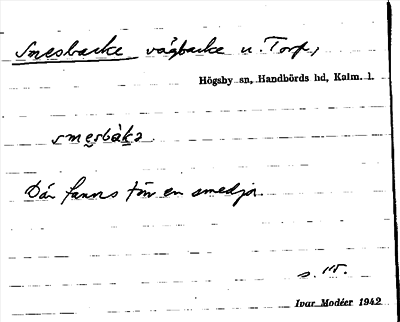 Smesbacke vägbacke u. Torp,
Högsby sn, Handbörds hd, Kalm. l.
smesbàka
Där fanns förr en smedja.
s. 115.
Ivar Modéer 1942